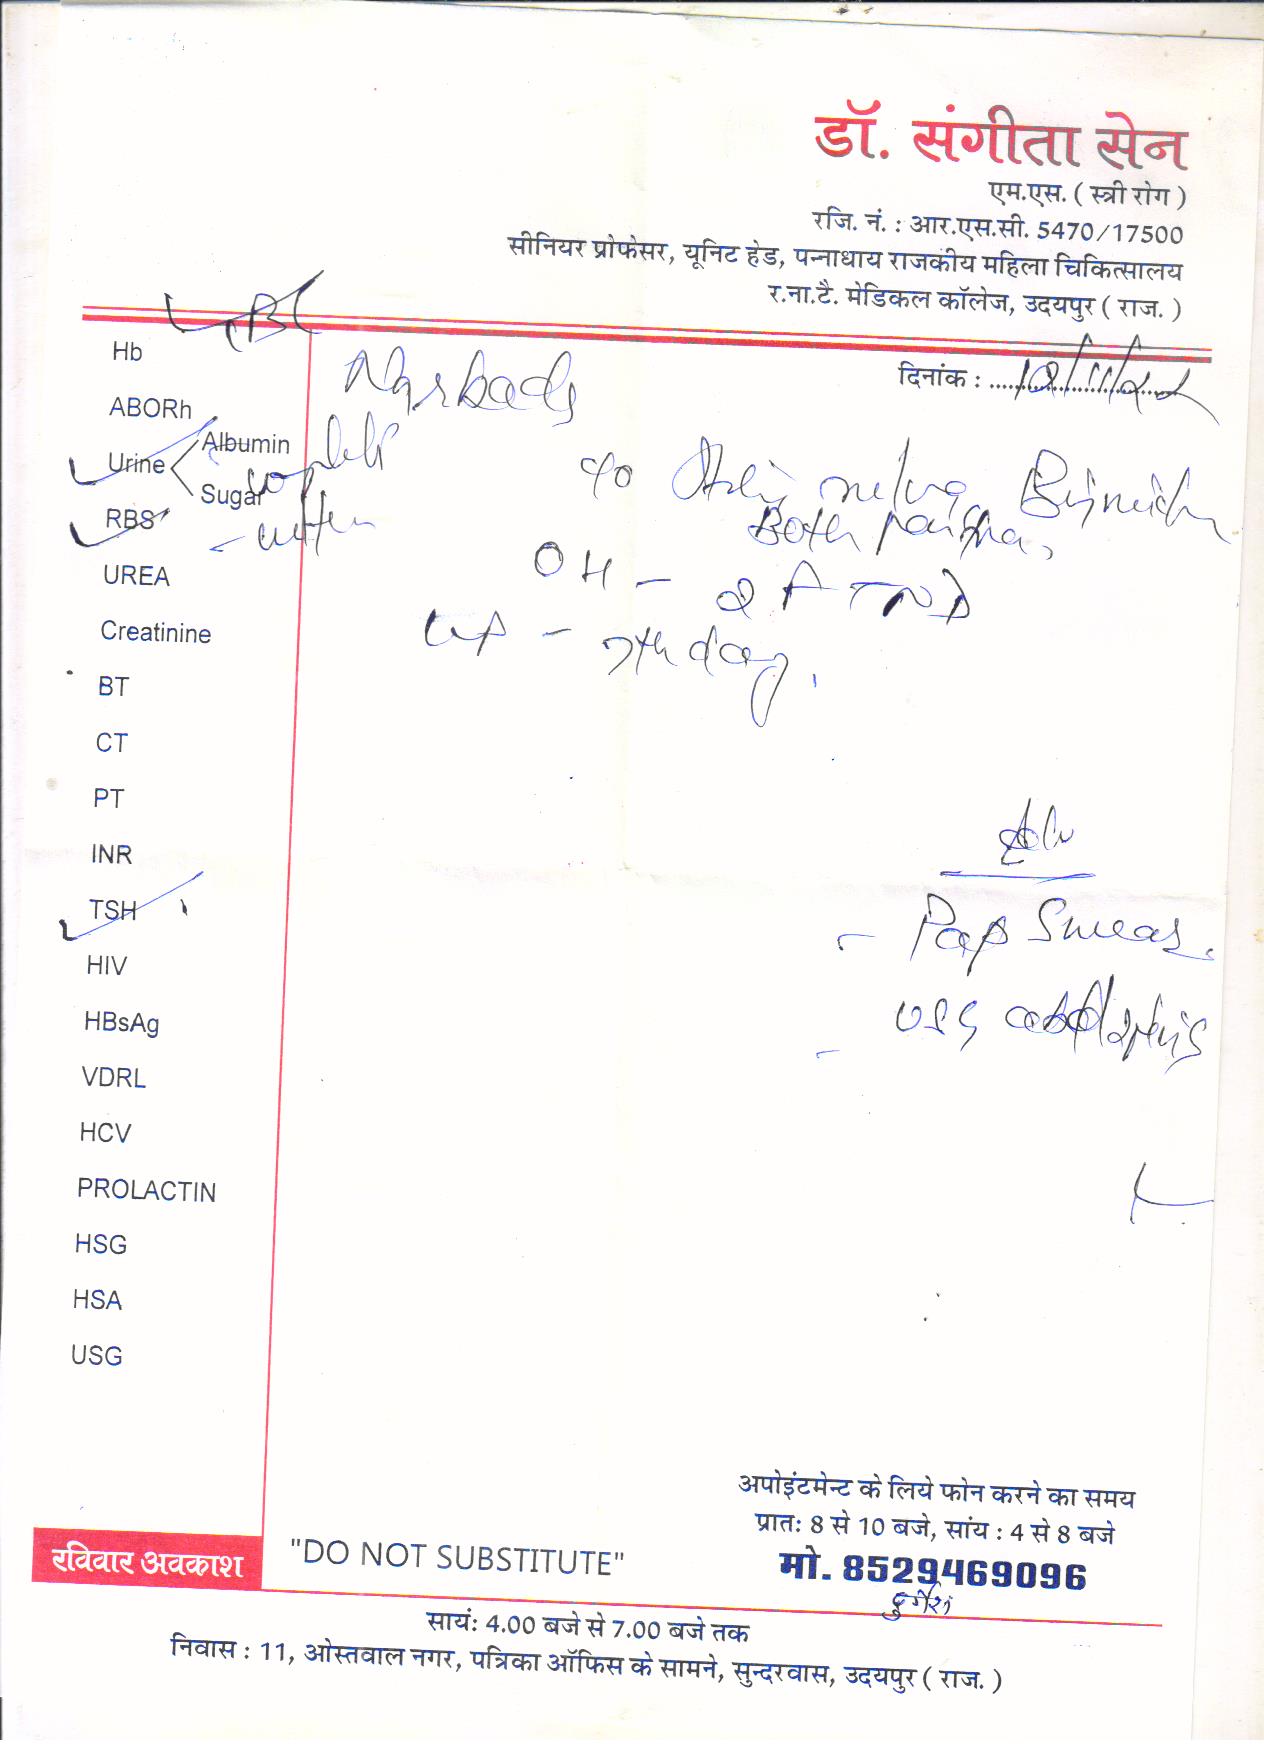 डॉ. संगीता सेन
एम.एस. ( स्त्री रोग )
रजि. नं. : आर.एस.सी. 5470/17500
सीनियर प्रोफेसर, यूनिट हेड, पन्नाधाय राजकीय महिला चिकित्सालय
र.ना.टै. मेडिकल कॉलेज, उदयपुर ( राज. )
CBC
दिनांक :
Hb
ABORh
Urine
Albumin
Sugar
RBS
UREA
Creatinine
BT
CT
PT
INR
TSH
HIV
HBsAg
VDRL
HCV
PROLACTIN
HSG
HSA
USG
c/o
Both
OH - 2 FTND
- 7th day
Adv
- Pap Smear
- USG
अपोइंटमेन्ट के लिये फोन करने का समय
प्रातः 8 से 10 बजे, सांय : 4 से 8 बजे
मो. 8529469096
रविवार अवकाश
"DO NOT SUBSTITUTE"
सायं: 4.00 बजे से 7.00 बजे तक
निवास : 11, ओस्तवाल नगर, पत्रिका ऑफिस के सामने, सुन्दरवास, उदयपुर ( राज. )